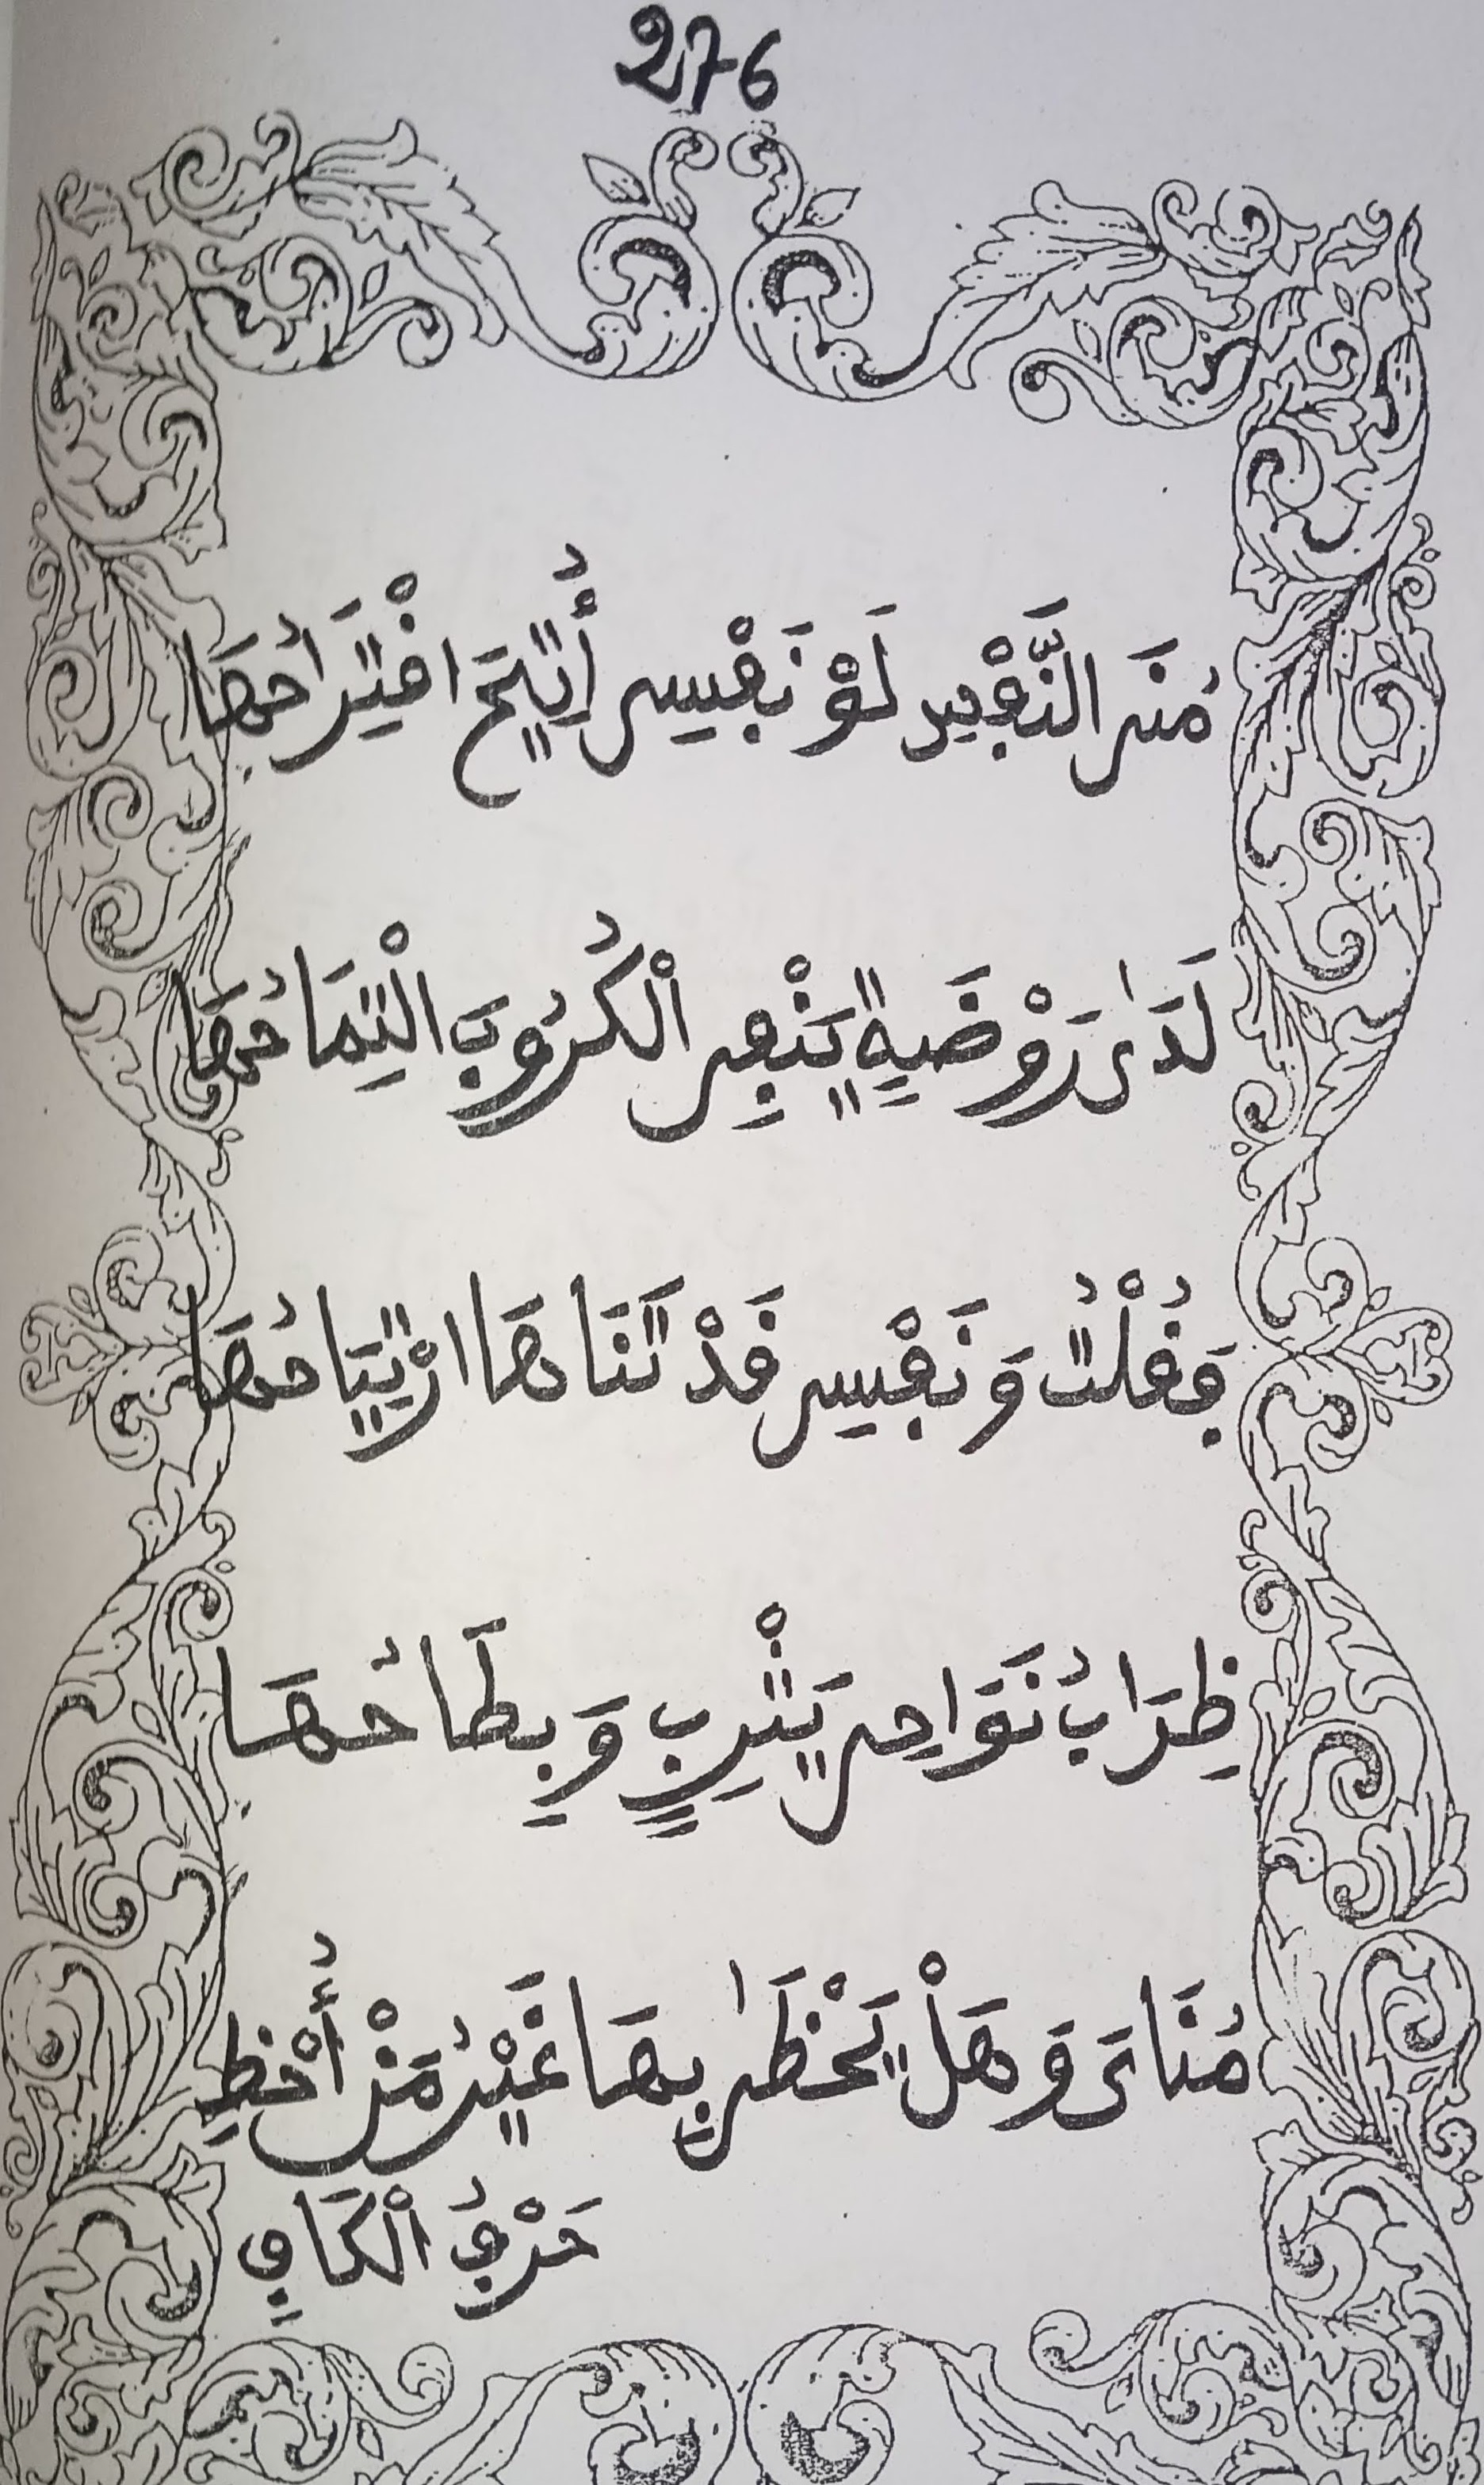 276
مُنَى النَّفْسِ لَوْ نَفْسِي أُتِيحَ اقْتِرَاحُهَا
لَدَى رَوْضَةٍ يَنْفِي الْكُرُوبَ الْتِمَاحُهَا
فَقُلْتُ وَنَفْسِي قَدْ تَنَاهَا ارْتِيَاحُهَا
ظِرَابُ نَوَاحِي يَثْرِبٍ وَبِطَاحُهَا
مُنَايَ وَهَلْ يَحْظَى بِهَا غَيْرُ مَنْ أُحْظِي
حَرْفُ الْكَافِ